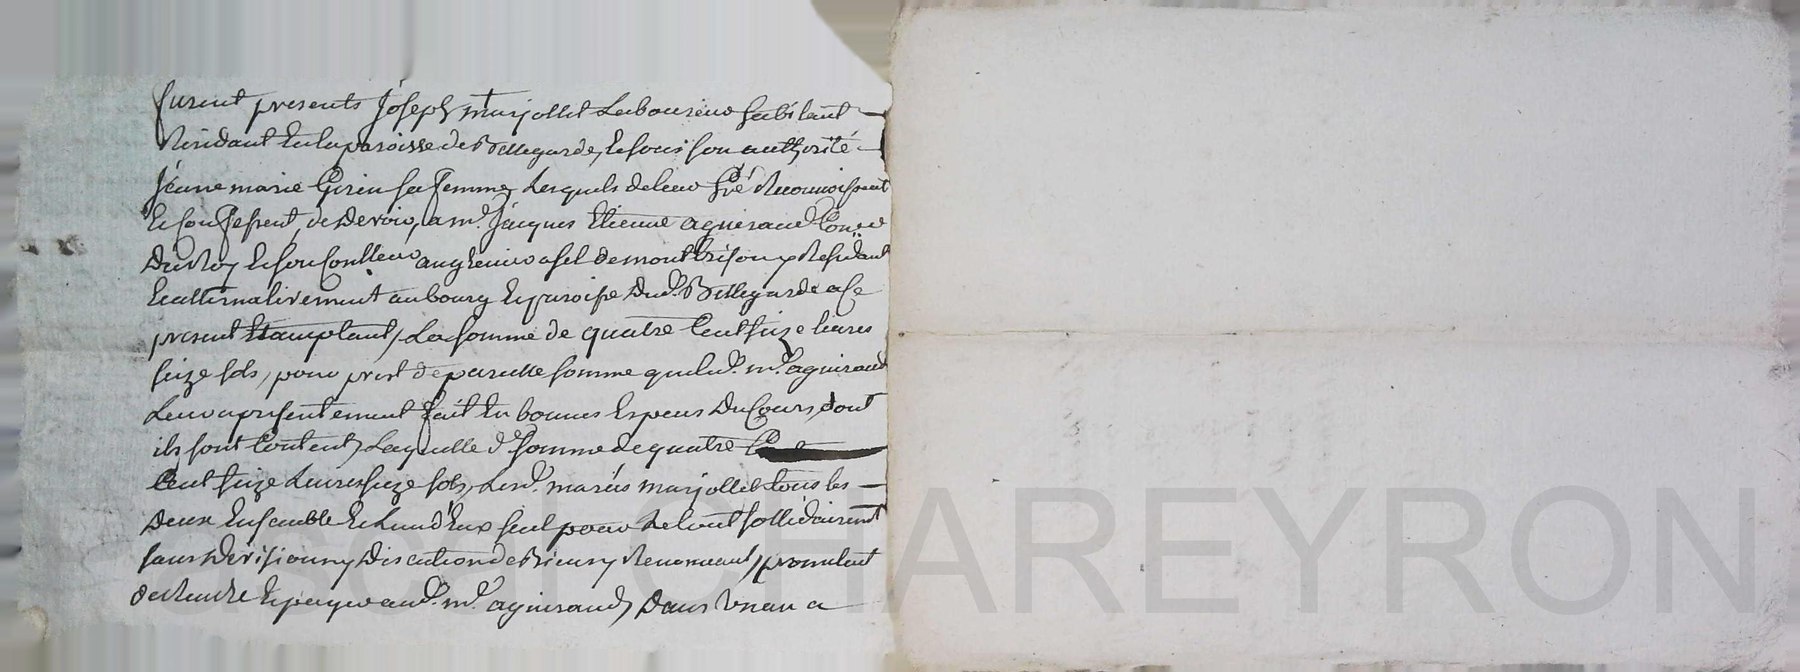 furent presents Joseph marjollet Laboureur habitant
Residant En la paroisse de Bellegarde, Et sous son authorité
Jeanne marie Girin sa femme, Lesquels de leur gré Reconnoissent
Et Confessent, de Devoir, a mr. Jacques Etienne aguiraud Conser
Du Roy Et son Conlleur au grenier a sel de montbrison y Residant
Et alternativement au bourg Et paroisse Dud. Bellegarde a Ce
present Et acceptant, La somme de quatre Cent seize livres
seize sols, pour prest de pareille somme que led. mr. aguiraud
Leur a presentement fait En bonnes Especes Du Cours, dont
ils sont Contents, Laquelle de. somme de quatre
Cent seize Livres seize sols, Lesd. mariés marjollet tous les
Deux Ensemble Et L'un d'Eux seul pour Le tout sollidairemt
sans Division ny Discution de Biens y Renonceant, promettent
de Rendre Et payer aud. mr. aguiraud, Dans un an a
CHAREYRON